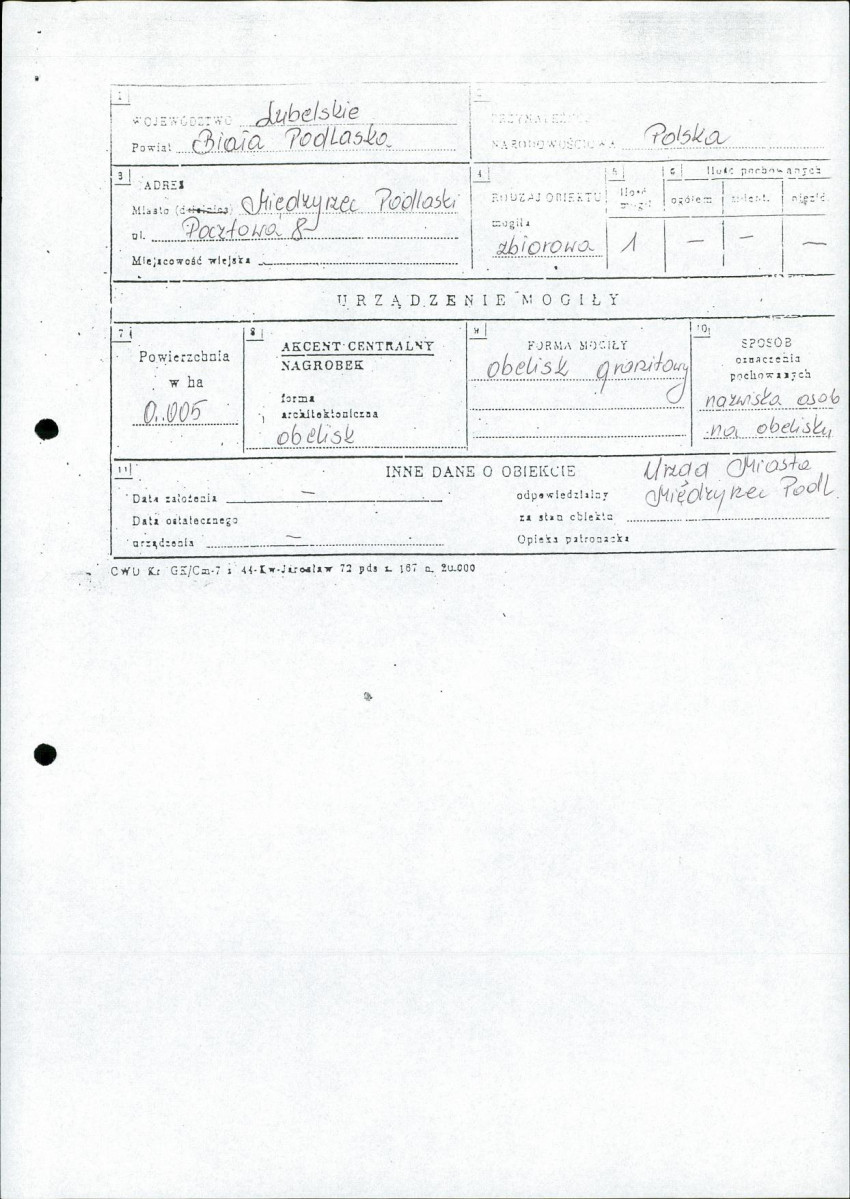 1
WOJEWÓDZTWO Lubelskie
Powiat Biała Podlaska
PRZYNALEŻNOŚĆ
NARODOWOŚCIOWA Polska
3
ADRES
Miasto (dzielnica) Międzyrzec Podlaski
ul. Pocztowa 8
Miejscowość wiejska
4
RODZAJ OBIEKTU
mogiła
zbiorowa
5
Ilość
mogił
1
6 Ilość pochowanych
ogółem
—
—
—
URZĄDZENIE MOGIŁY
7
Powierzchnia
w ha
0.005
8
AKCENT CENTRALNY
NAGROBEK
forma
architektoniczna
obelisk
9
FORMA MOGIŁY
obelisk granitowy
10
SPOSÓB
oznaczenia
pochowanych
nazwiska osób
na obelisku
11
INNE DANE O OBIEKCIE
Data założenia —
Data ostatecznego
urządzenia —
Urząd Miasta
odpowiedzialny Międzyrzec Podl.
za stan obiektu
Opieka patronacka
CWU Kr GK/Cm-7 i 44-Kw-Jarosław 72 pds z. 167 n. 20.000